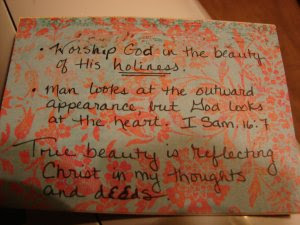 • Worship God in the beauty
of His holiness.
• Man looks at the outward
appearance but God looks
at the heart. I Sam. 16:7
True beauty is reflecting
Christ in my thoughts
and deeds